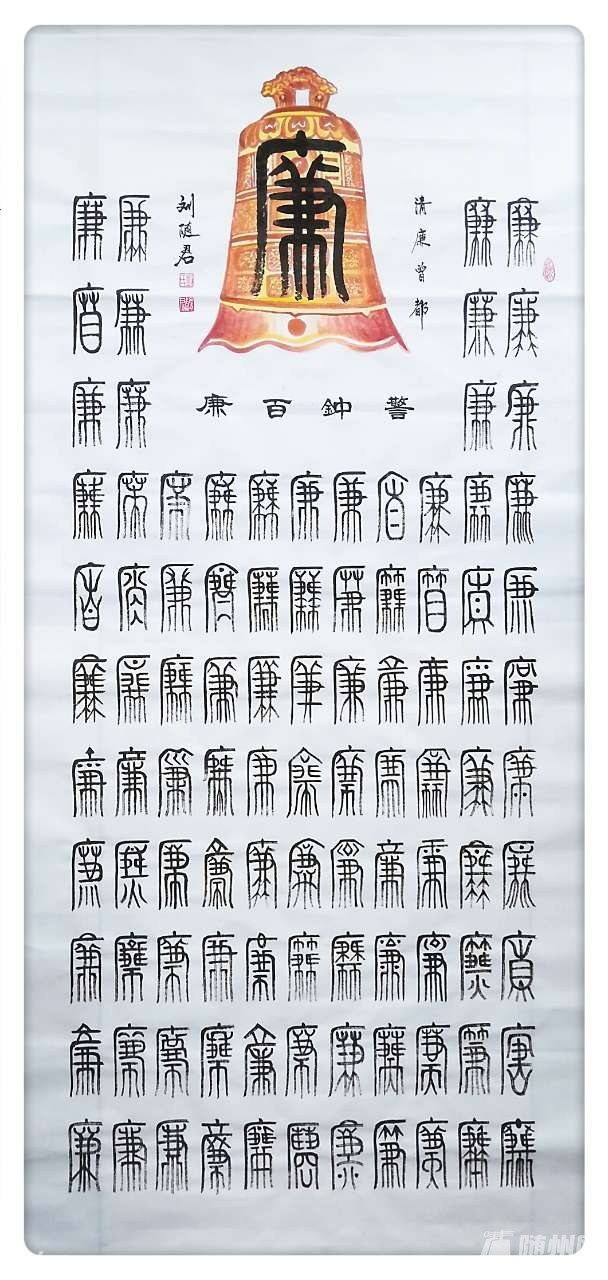 廉
清廉曾都
警鈡百廉
廉廉廉廉廉廉廉廉廉廉廉
廉廉廉廉廉廉廉廉廉廉廉
廉廉廉廉廉廉廉廉
廉廉廉廉廉廉廉廉
廉廉廉廉廉廉廉廉
廉廉廉廉廉廉廉廉
廉廉廉廉廉廉廉廉
廉廉廉廉廉廉廉廉
廉廉廉廉廉廉廉廉
廉廉廉廉廉廉廉廉廉廉廉
廉廉廉廉廉廉廉廉廉廉廉
刘随君
随州